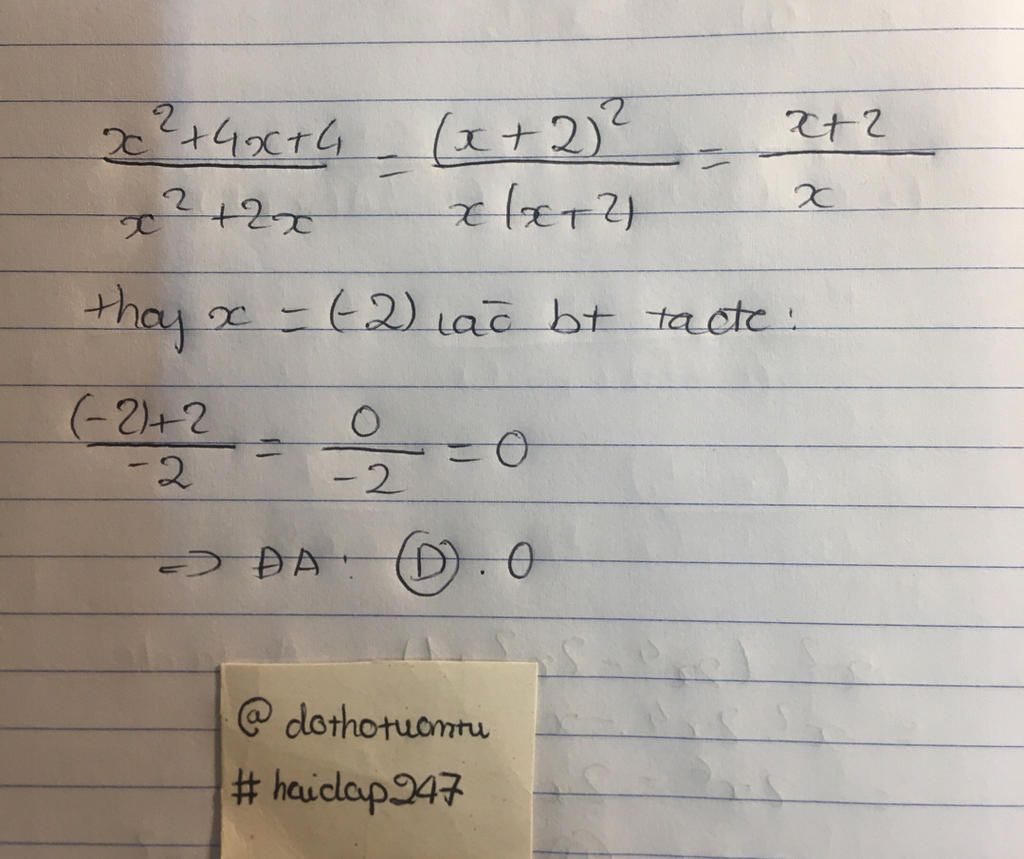 x²+4x+4 / x²+2x = (x+2)² / x(x+2) = x+2 / x
thay x = (-2) bt
(-2)+2 / -2 = 0 / -2 = 0
=> ĐA: D. 0
@ dothotuontu
# hoidap247